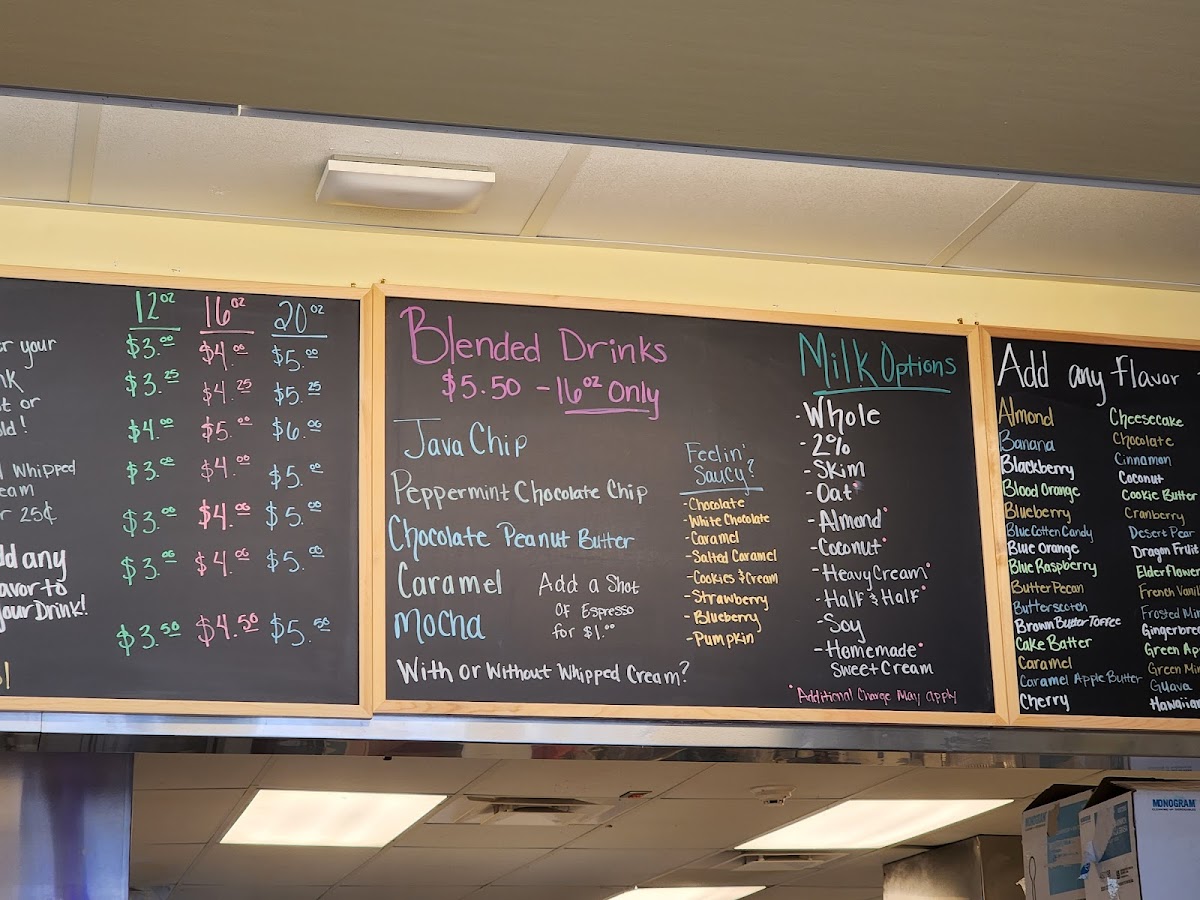 12oz 16oz 20oz
$3.00 $4.00 $5.00
$3.25 $4.25 $5.25
$4.00 $5.00 $6.00
$3.00 $4.00 $5.00
$3.00 $4.00 $5.00
$3.00 $4.00 $5.00
$3.50 $4.50 $5.50
your
or
Whipped
25¢
any
to
your Drink!
Blended Drinks
$5.50 - 16oz Only
Java Chip
Peppermint Chocolate Chip
Chocolate Peanut Butter
Caramel
Mocha
Add a Shot
of Espresso
for $1.00
With or Without Whipped Cream?
Feelin'
Saucy?
-Chocolate
-White Chocolate
-Caramel
-Salted Caramel
-Cookies & Cream
-Strawberry
-Blueberry
-Pumpkin
Milk Options
-Whole
-2%
-Skim
-Oat*
-Almond*
-Coconut*
-Heavy Cream*
-Half & Half*
-Soy
-Homemade*
Sweet Cream
*Additional Charge May Apply
Add any flavor
Almond
Banana
Blackberry
Blood Orange
Blueberry
Blue Cotten Candy
Blue Orange
Blue Raspberry
Butter Pecan
Butterscotch
Brown Butter Toffee
Cake Batter
Caramel
Caramel Apple Butter
Cherry
Cheesecake
Chocolate
Cinnamon
Coconut
Cookie Butter
Cranberry
Desert Pear
Dragon Fruit
Elderflower
French
Frosted
Green
Green
Guava
MONOGRAM